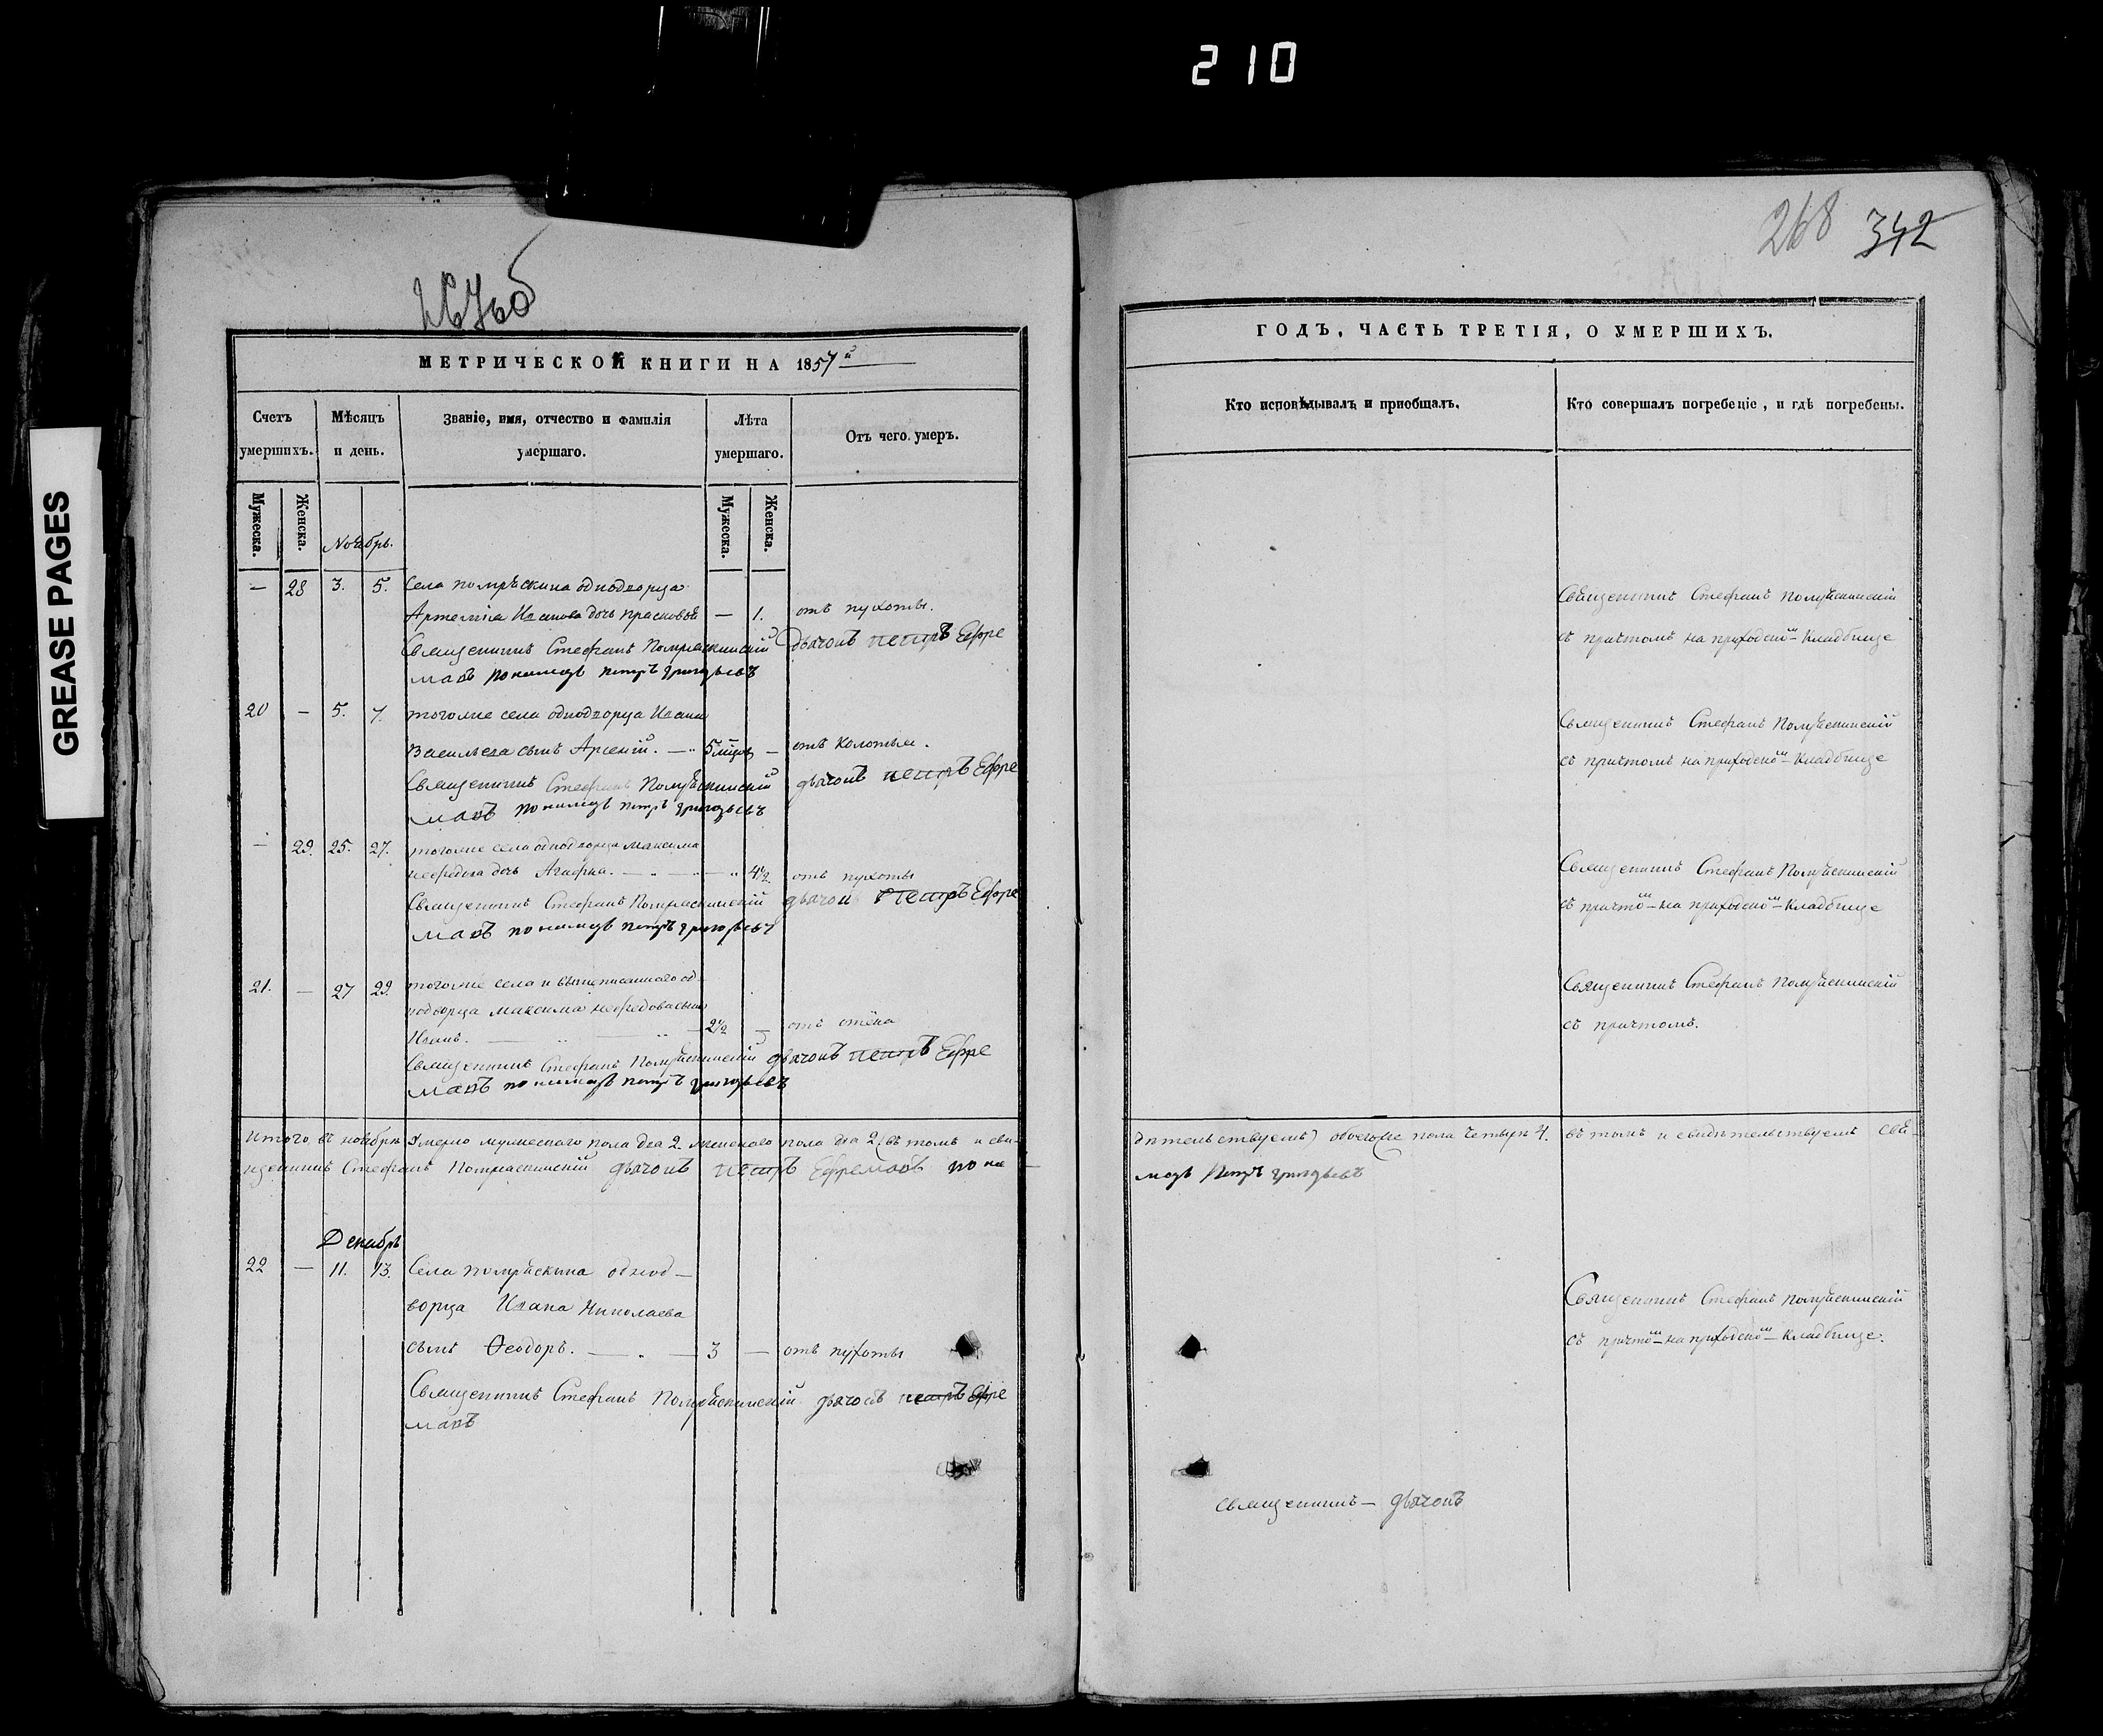 210
GREASE PAGES
267 об
МЕТРИЧЕСКОЙ КНИГИ НА 1857й
Счетъ умершихъ.
Мѣсяцъ и день.
Званіе, имя, отчество и фамилія умершаго.
Лѣта умершаго.
Отъ чего умеръ.
Мужеска.
Женска.
Мужеска.
Женска.
Ноябрь.
— 28 3. 5. Села Потряскина однодворца
Артемія Иванова дочь Прасковья — 1. отъ пухоты.
Священникъ Стефанъ Потряскинскій Дьячокъ Петръ Ефре
мовъ пономарь Петръ Григорьевъ
20 — 5. 7. тогоже села однодворца Ивана
Васильева сынъ Арсеній. — 5 мцовъ — отъ колотья.
Священникъ Стефанъ Потряскинскій дьячокъ Петръ Ефре
мовъ пономарь Петръ Григорьевъ
— 29. 25. 27. тогоже села однодворца Максима
Нефедова дочь — 4½ отъ пухоты
Священникъ Стефанъ Потряскинскій дьячокъ Петръ Ефре
мовъ пономарь Петръ Григорьевъ
21. — 27 29. тогоже села и вышеписаннаго од
нодворца Максима Нефедова сынъ
Иванъ. — 2½ — отъ
Священникъ Стефанъ Потряскинскій дьячокъ Петръ Ефре
мовъ пономарь Петръ Григорьевъ
Итого въ ноябрѣ умерло мужескаго пола два 2. женскаго пола два 2, въ томъ и сви-
щенникъ Стефанъ Потряскинскій дьячокъ Петръ Ефремовъ поно
Декабрь
22 — 11. 13. Села Потряскина однод—
ворца Ивана Николаева
сынъ Ѳеодоръ. — 3 — отъ пухоты
Священникъ Стефанъ Потряскинскій дьячокъ Петръ Ефре
мовъ
268 342
ГОДЪ, ЧАСТЬ ТРЕТІЯ, О УМЕРШИХЪ.
Кто исповѣдывалъ и приобщалъ.
Кто совершалъ погребеніе, и гдѣ погребены.
Священникъ Стефанъ Потряскинскій
съ причтомъ на приходскомъ кладбище
Священникъ Стефанъ Потряскинскій
съ причтомъ на приходскомъ кладбище
Священникъ Стефанъ Потряскинскій
съ причтомъ на приходскомъ кладбище
Священникъ Стефанъ Потряскинскій
съ причтомъ.
дѣтельствуемъ) обоего пола четыре 4. въ томъ и свидѣтельствуемъ свя-
марь Петръ Григорьевъ
Священникъ Стефанъ Потряскинскій
съ причтомъ на приходскомъ кладбище.
священникъ — дьячокъ